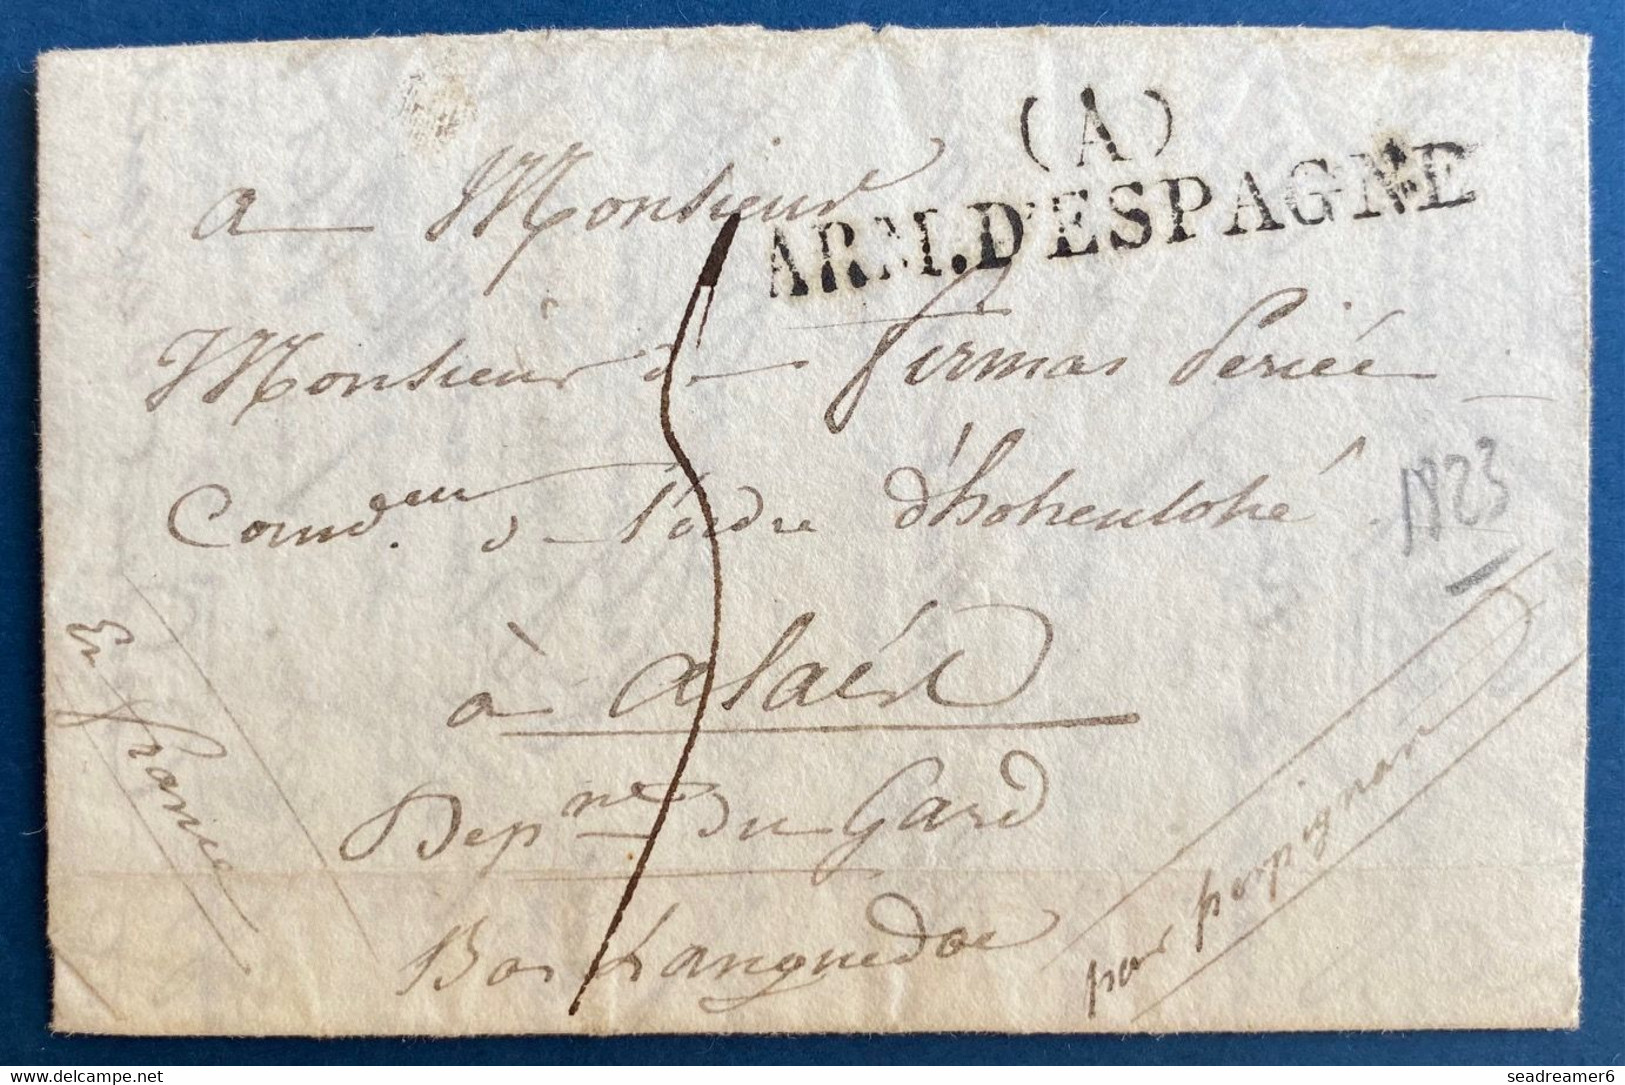 (A)
ARM. D'ESPAGNE
a Monsieur
Monsieur de firmas Periés
Comd.eur de l'ordre d'hohenlohé
1823
à alaés
Dep.nt du Gard
Bas Languedoc
En france
par perpignan
www.delcampe.net
seadreamer6